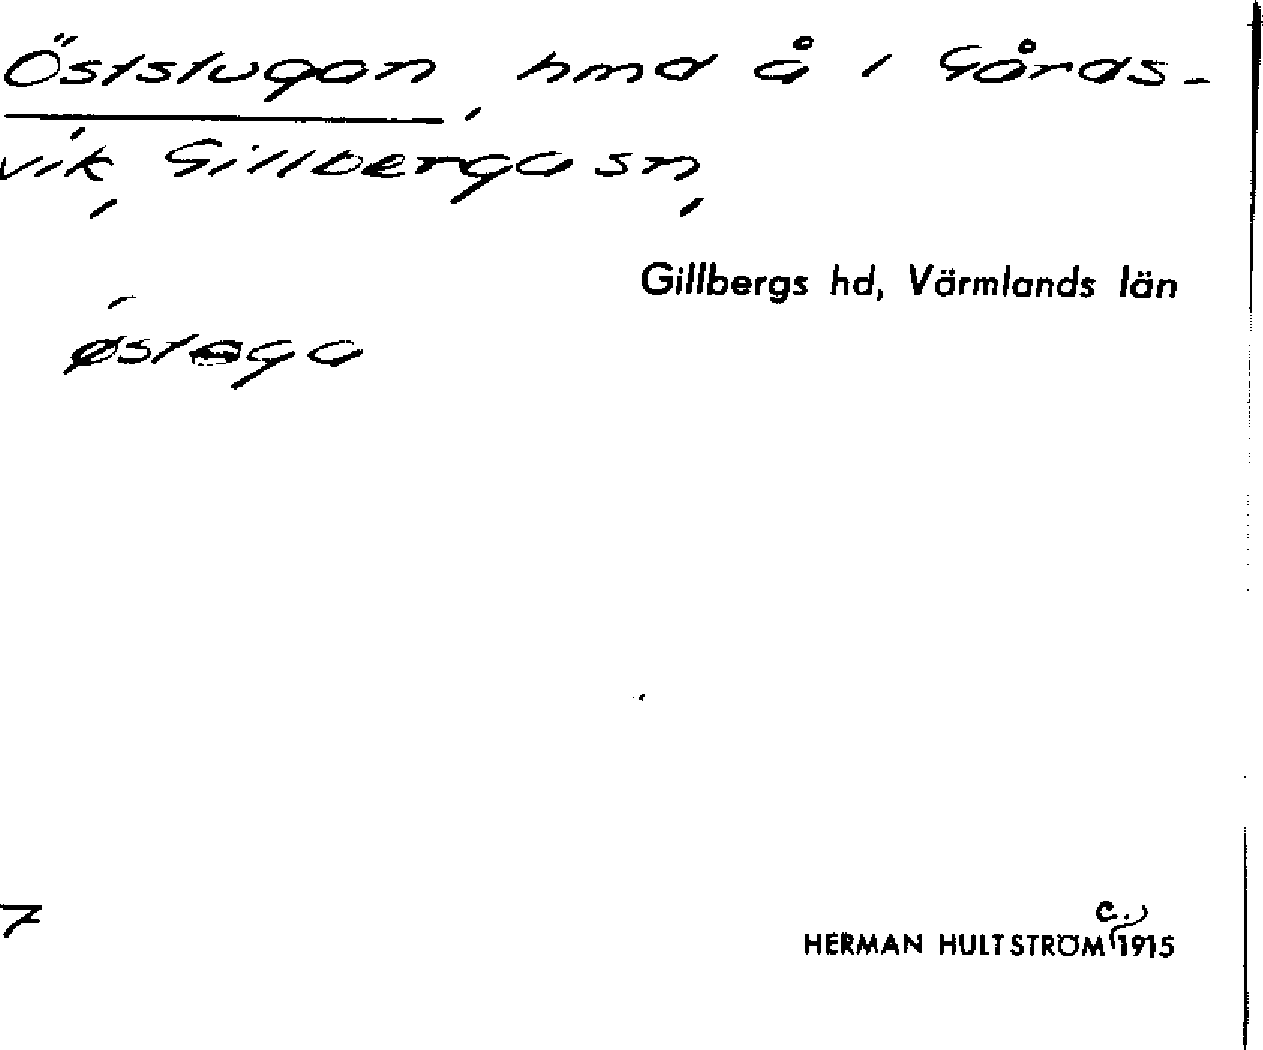 Öststugan, hmd å i Gårds-
vik, Gillberga sn,
Gillbergs hd, Värmlands län
7
c.
HERMAN HULTSTRÖM 1915